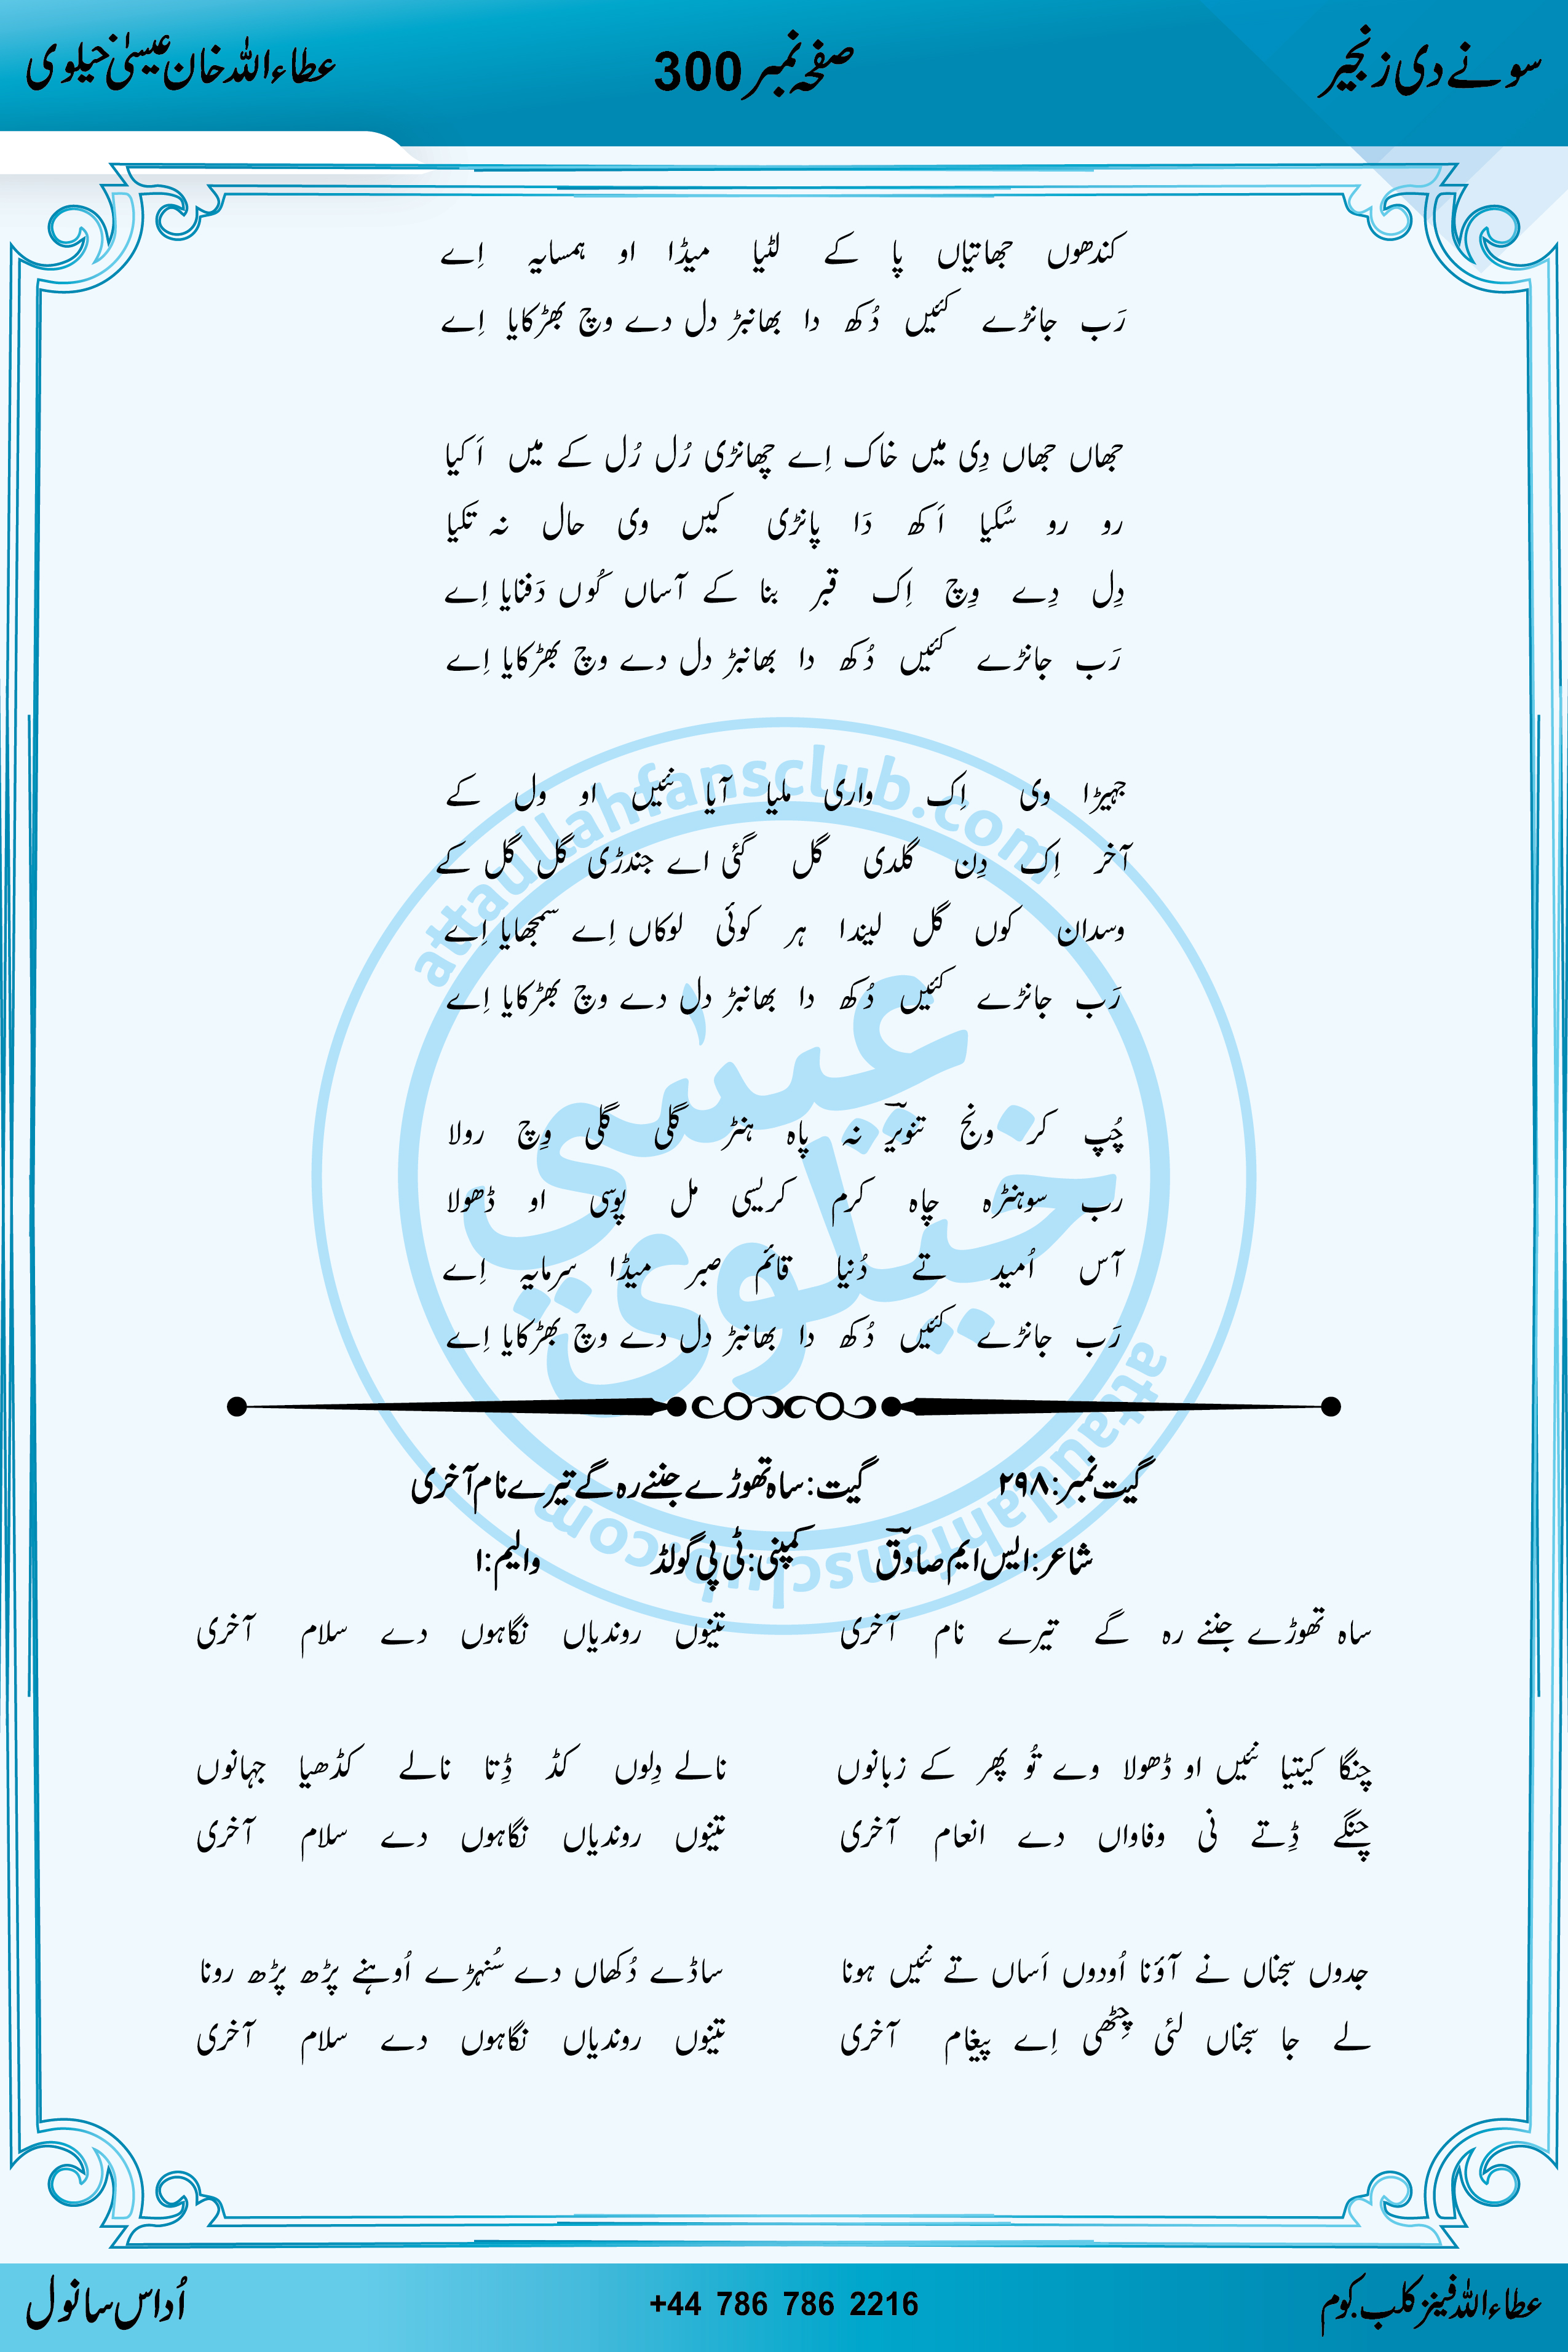 سونے دی زنجیر صفحہ نمبر 300 عطاءاللہ خان عیسیٰ خیلوی
کندھوں جھاتیاں پا کے لٹیا میڈا او ہمسایہ اِے
رَب جانڑے کئیں دُکھ دا بھانبڑ دل دے وچ بھڑکایا اِے
جھاں جھاں دِی میں خاک اِے چھانڑی رُل رُل کے میں اَکیا
رو رو سُکیا اَکھ دَا پانڑی کیں وی حال نہ تکیا
دِل دِے وِچ اِک قبر بنا کے آساں کُوں دَفنایا اِے
رَب جانڑے کئیں دُکھ دا بھانبڑ دل دے وچ بھڑکایا اِے
جہیڑا وی اِک واری ملیا آیا نئیں او ول کے
آخر اِک دِن گلدی گل گئی اے جندڑی گل گل کے
وسدان کوں گل لیندا ہر کوئی لوکاں اِے سمجھایا اِے
رَب جانڑے کئیں دُکھ دا بھانبڑ دل دے وچ بھڑکایا اِے
چُپ کر ونج تنویرؔ نہ پاہ ہنڑ گلی گلی وِچ رولا
رب سوہنڑہ چاہ کرم کریسی مل پوسی او ڈھولا
آس اُمید تے دُنیا قائم صبر میڈا سرمایہ اِے
رَب جانڑے کئیں دُکھ دا بھانبڑ دل دے وچ بھڑکایا اِے
گیت نمبر: ۲۹۸ گیت: ساہ تھوڑے جننے رہ گے تیرے نام آخری
شاعر: ایس ایم صادقؔ کمپنی: ٹی پی گولڈ والیم: ۱
ساہ تھوڑے جننے رہ گے تیرے نام آخری تینوں روندیاں نگاہوں دے سلام آخری
چنگا کیتیا نئیں او ڈھولا وے تُو پھر کے زبانوں نالے دِلوں کڈ ڈِتا نالے کڈھیا جہانوں
چنگے ڈِتے نی وفاواں دے انعام آخری تینوں روندیاں نگاہوں دے سلام آخری
جدوں سجناں نے آؤنا اُودوں اَساں تے نئیں ہونا ساڈے دُکھاں دے سُنہڑے اُوہنے پڑھ پڑھ رونا
لے جا سجناں لئی چِٹھی اِے پیغام آخری تینوں روندیاں نگاہوں دے سلام آخری
attaullahfansclub.com
عیسٰی
خیلوی
attaullahfansclub.com
عطاءاللہ فینز کلب.کوم +44 786 786 2216 اُداس سانول